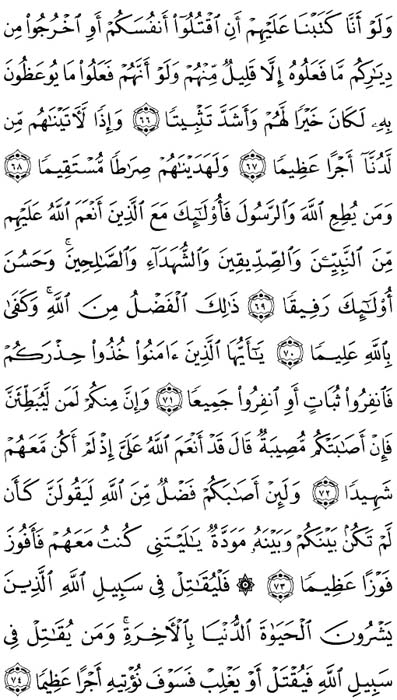 وَلَوۡ أَنَّا كَتَبۡنَا عَلَيۡهِمۡ أَنِ ٱقۡتُلُوٓاْ أَنفُسَكُمۡ أَوِ ٱخۡرُجُواْ مِن
دِيَٰرِكُم مَّا فَعَلُوهُ إِلَّا قَلِيلٞ مِّنۡهُمۡۖ وَلَوۡ أَنَّهُمۡ فَعَلُواْ مَا يُوعَظُونَ
بِهِۦ لَكَانَ خَيۡرٗا لَّهُمۡ وَأَشَدَّ تَثۡبِيتٗا ٦٦ وَإِذٗا لَّأٓتَيۡنَٰهُم مِّن
لَّدُنَّآ أَجۡرًا عَظِيمٗا ٦٧ وَلَهَدَيۡنَٰهُمۡ صِرَٰطٗا مُّسۡتَقِيمٗا ٦٨
وَمَن يُطِعِ ٱللَّهَ وَٱلرَّسُولَ فَأُوْلَٰٓئِكَ مَعَ ٱلَّذِينَ أَنۡعَمَ ٱللَّهُ عَلَيۡهِم
مِّنَ ٱلنَّبِيِّـۧنَ وَٱلصِّدِّيقِينَ وَٱلشُّهَدَآءِ وَٱلصَّٰلِحِينَۚ وَحَسُنَ
أُوْلَٰٓئِكَ رَفِيقٗا ٦٩ ذَٰلِكَ ٱلۡفَضۡلُ مِنَ ٱللَّهِۚ وَكَفَىٰ
بِٱللَّهِ عَلِيمٗا ٧٠ يَٰٓأَيُّهَا ٱلَّذِينَ ءَامَنُواْ خُذُواْ حِذۡرَكُمۡ
فَٱنفِرُواْ ثُبَاتٍ أَوِ ٱنفِرُواْ جَمِيعٗا ٧١ وَإِنَّ مِنكُمۡ لَمَن لَّيُبَطِّئَنَّ
فَإِنۡ أَصَٰبَتۡكُم مُّصِيبَةٞ قَالَ قَدۡ أَنۡعَمَ ٱللَّهُ عَلَيَّ إِذۡ لَمۡ أَكُن مَّعَهُمۡ
شَهِيدٗا ٧٢ وَلَئِنۡ أَصَٰبَكُمۡ فَضۡلٞ مِّنَ ٱللَّهِ لَيَقُولَنَّ كَأَن
لَّمۡ تَكُنۢ بَيۡنَكُمۡ وَبَيۡنَهُۥ مَوَدَّةٞ يَٰلَيۡتَنِي كُنتُ مَعَهُمۡ فَأَفُوزَ
فَوۡزًا عَظِيمٗا ٧٣ ۞ فَلۡيُقَٰتِلۡ فِي سَبِيلِ ٱللَّهِ ٱلَّذِينَ
يَشۡرُونَ ٱلۡحَيَوٰةَ ٱلدُّنۡيَا بِٱلۡأٓخِرَةِۚ وَمَن يُقَٰتِلۡ فِي
سَبِيلِ ٱللَّهِ فَيُقۡتَلۡ أَوۡ يَغۡلِبۡ فَسَوۡفَ نُؤۡتِيهِ أَجۡرًا عَظِيمٗا ٧٤